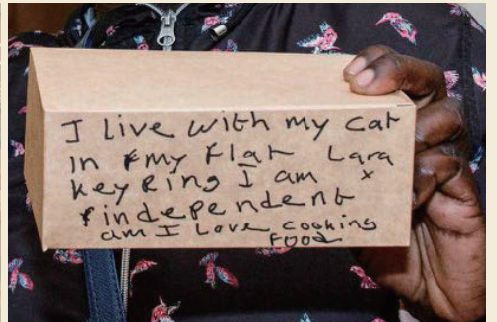 I live with my cat
in my flat Lara
key Ring I am x
independent
am I Love cooking
food